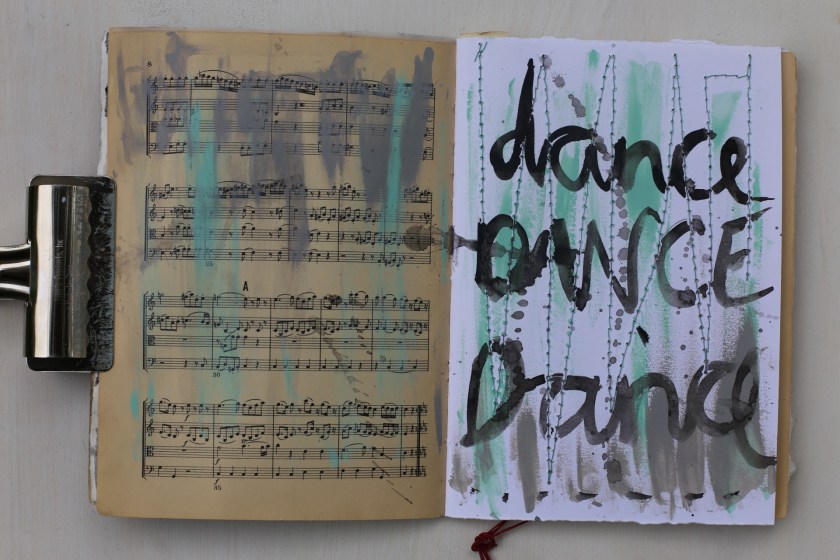 8
A
30
35
dance
DANCE
Dance